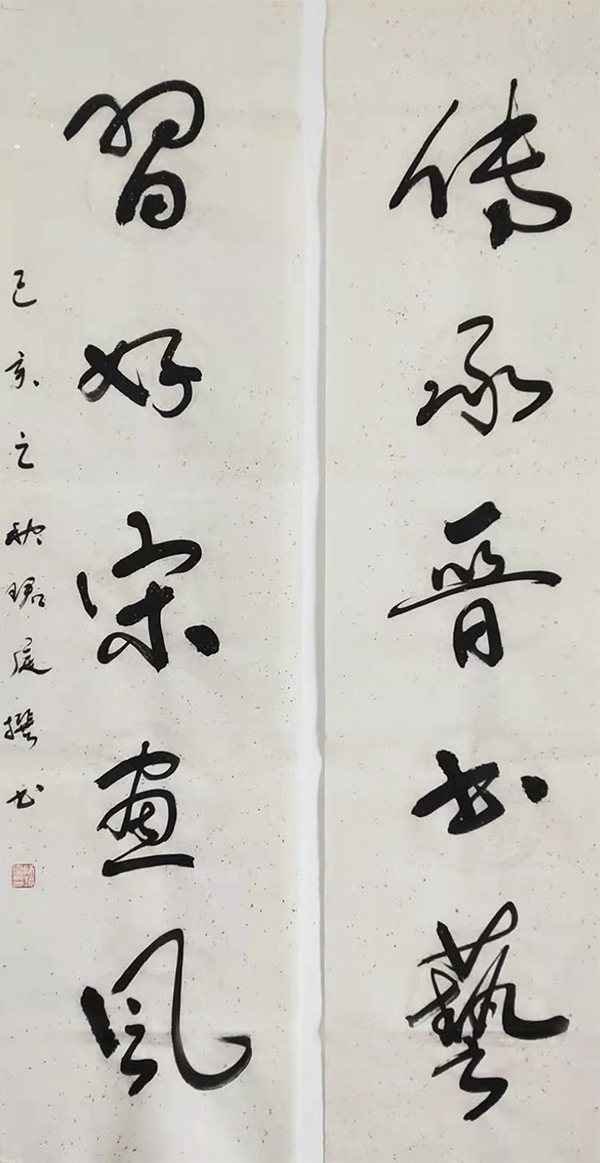 傳承晉書藝
習好宋畫風
己亥之秋珺庭撰书